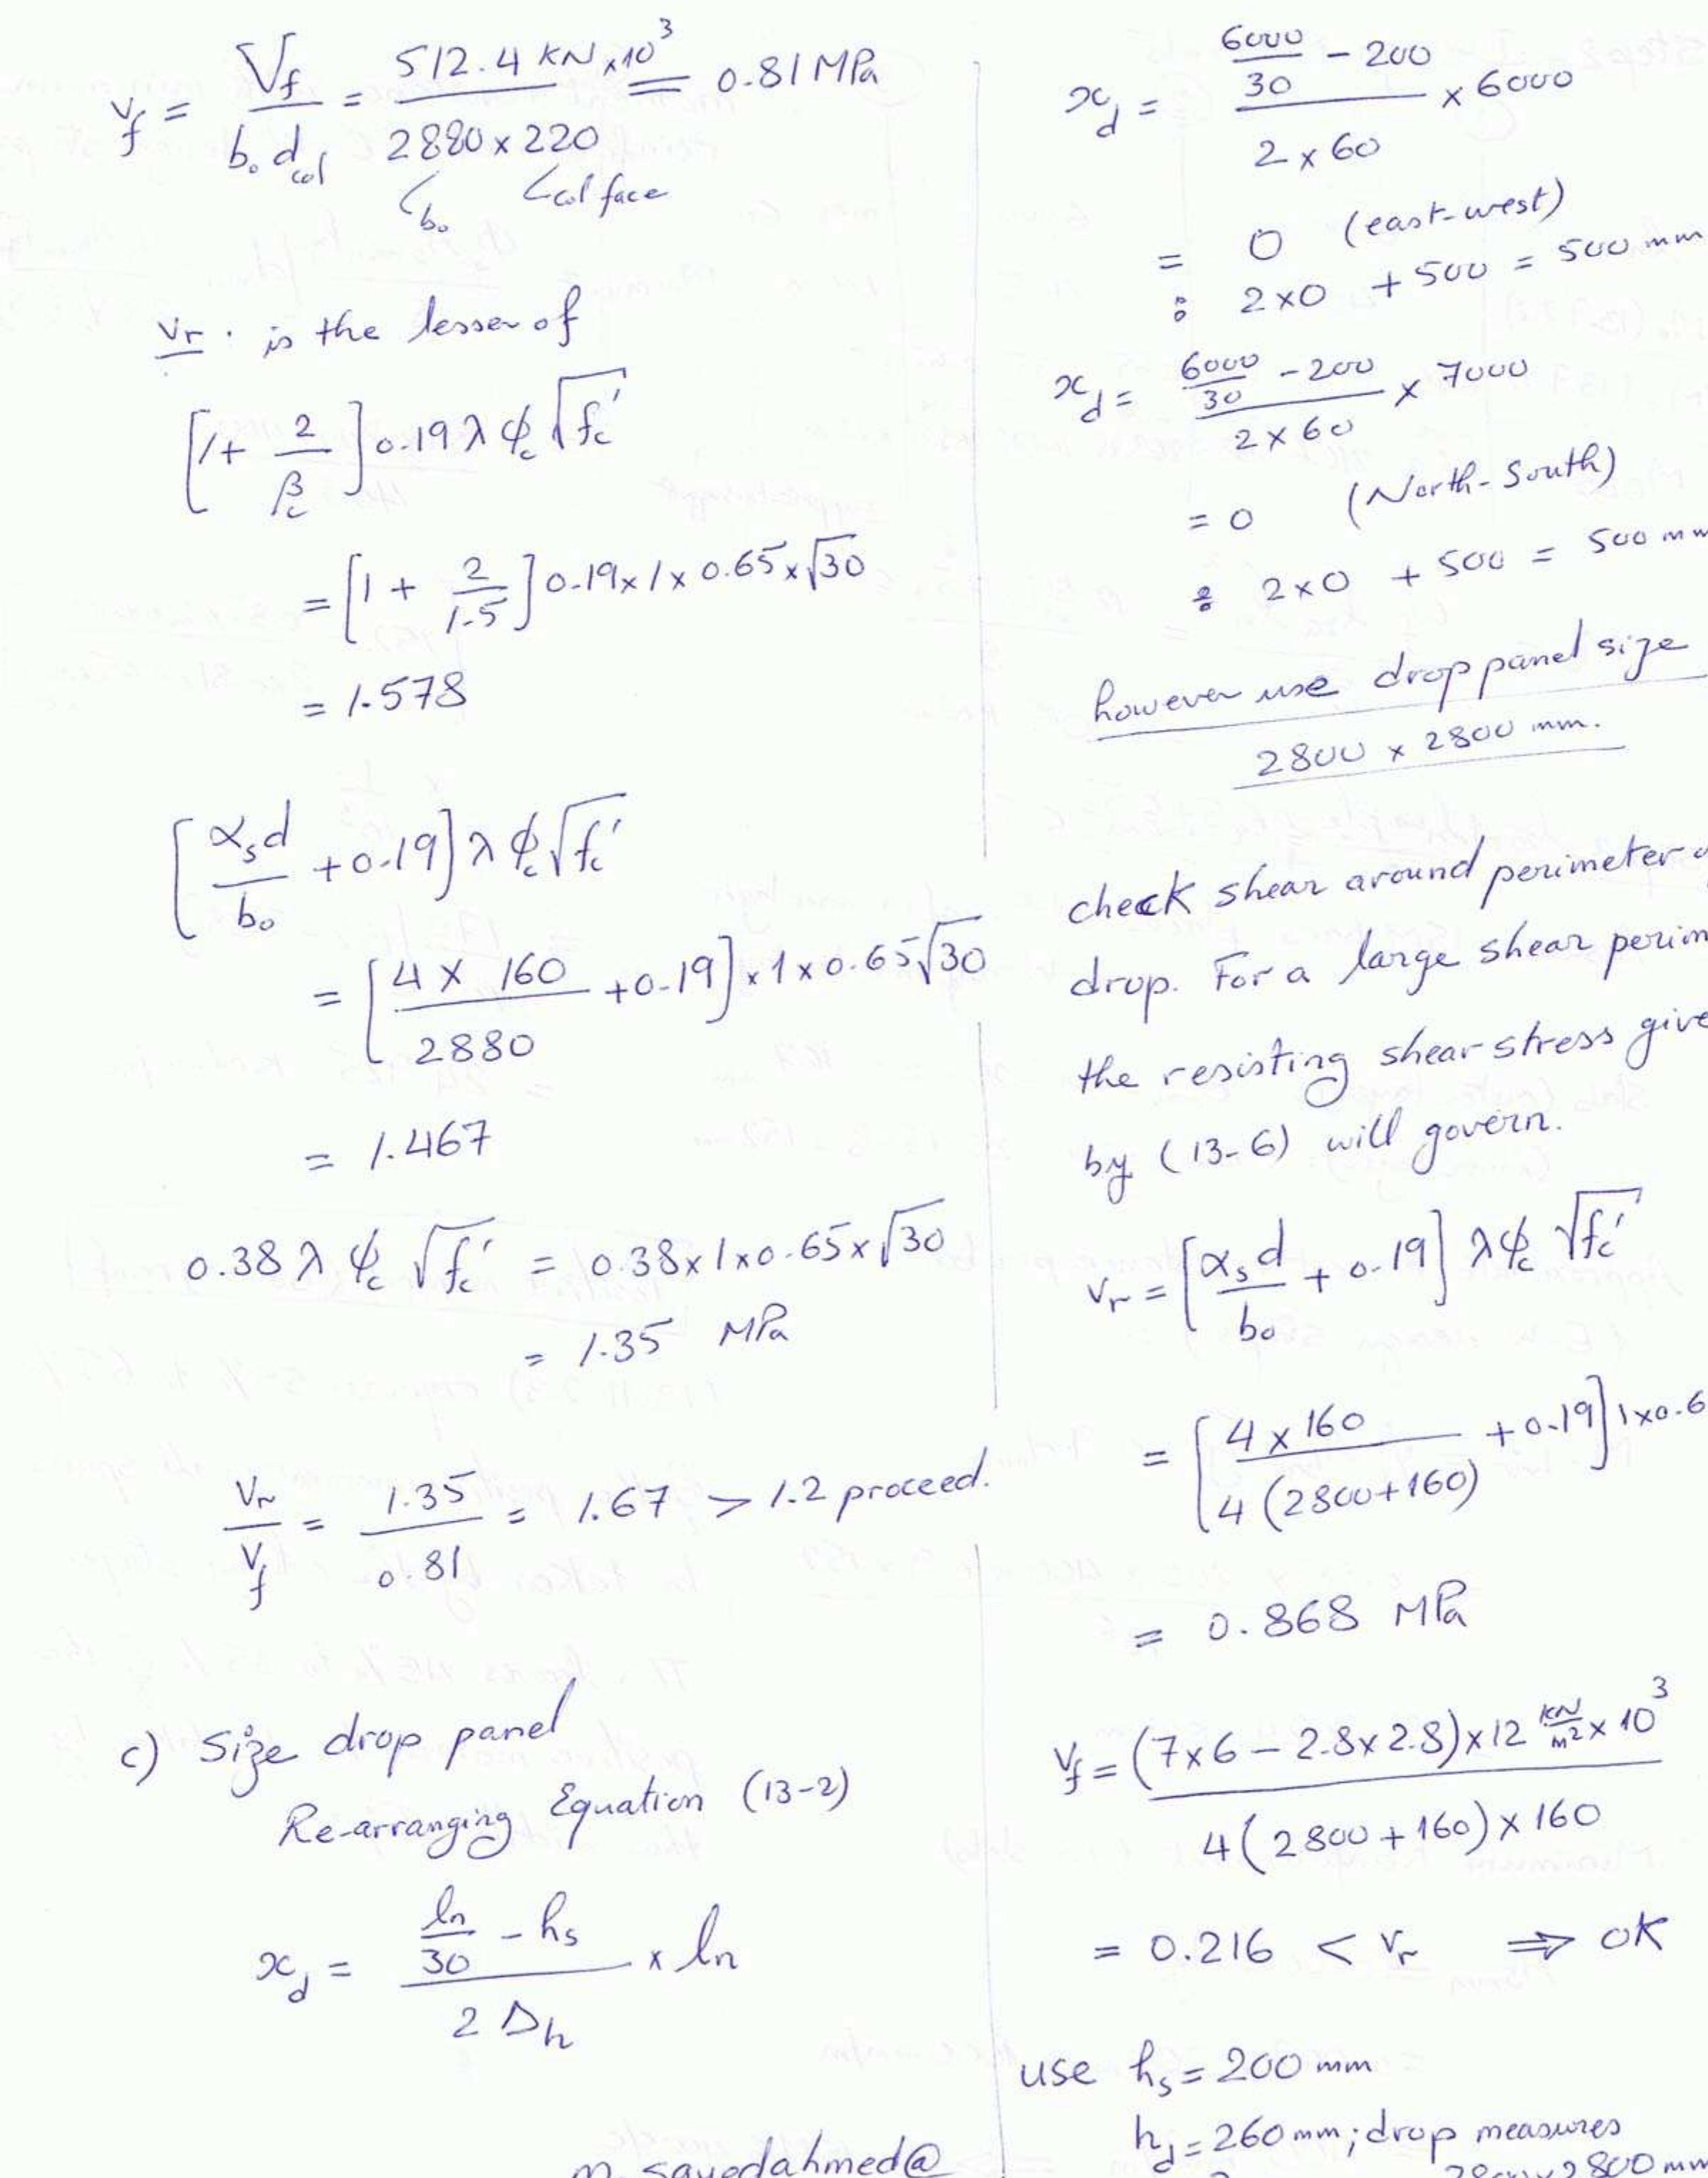 v_f = V_f / (b_o d_col) = 512.4 kN × 10³ / (2880 × 220) = 0.81 MPa
b_o col face
v_r . is the lesser of
[1 + 2/β_c] 0.19 λ ϕ_c √f_c'
= [1 + 2/1.5] 0.19 × 1 × 0.65 × √30
= 1.578
[α_s d / b_o + 0.19] λ ϕ_c √f_c'
= [4 × 160 / 2880 + 0.19] × 1 × 0.65 √30
= 1.467
0.38 λ ϕ_c √f_c' = 0.38 × 1 × 0.65 × √30
= 1.35 MPa
v_r / v_f = 1.35 / 0.81 = 1.67 > 1.2 proceed.
c) Size drop panel
Re-arranging Equation (13-2)
x_d = (ln/30 - h_s) / (2 Δh) × ln
m.sayedahmed@
x_d = (6000/30 - 200) / (2 × 60) × 6000
= 0 (east-west)
: 2×0 + 500 = 500 mm
x_d = (6000/30 - 200) / (2 × 60) × 7000
= 0 (North-South)
: 2×0 + 500 = 500 mm
however use drop panel size
2800 × 2800 mm.
check shear around perimeter
drop. For a large shear perim
the resisting shear stress give
by (13-6) will govern.
v_r = [α_s d / b_o + 0.19] λ ϕ_c √f_c'
= [4 × 160 / 4 (2800+160) + 0.19] 1×0.6
= 0.868 MPa
v_f = (7×6 - 2.8×2.8) × 12 kN/m² × 10³ / 4(2800+160) × 160
= 0.216 < v_r ⇒ OK
use h_s = 200 mm
h_d = 260 mm; drop measures
2800 mm